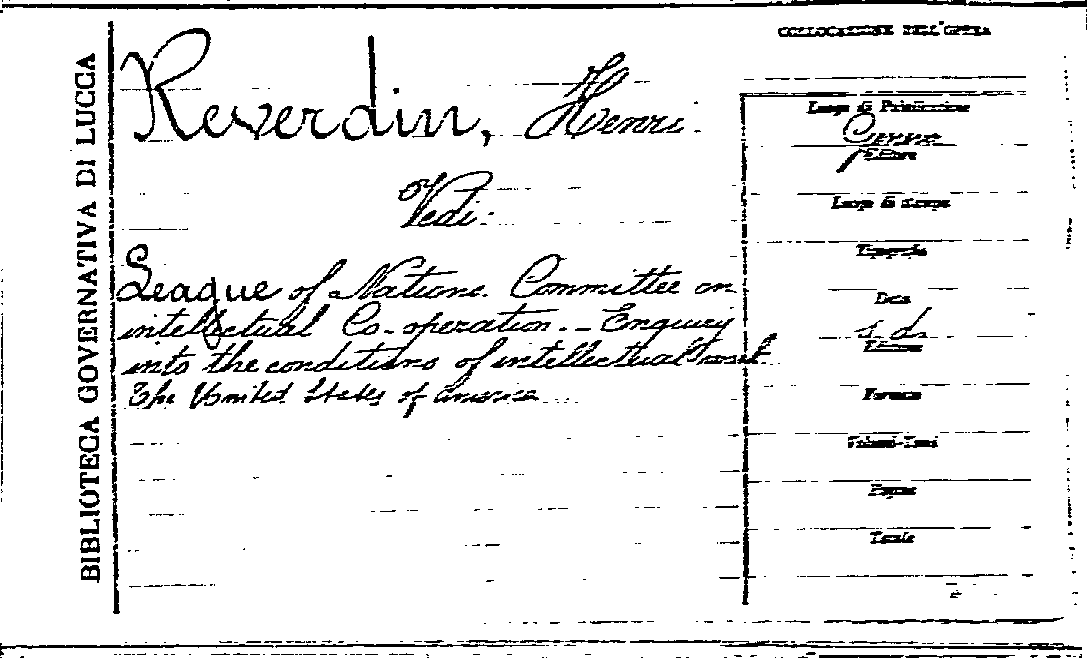 BIBLIOTECA GOVERNATIVA DI LUCCA
Reverdin, Henri.
Vedi:
League of Nations. Committee on
intellectual Co-operation. - Enquiry
into the conditions of intellectual
The United States of America
COLLOCAZIONE DELL'OPERA
Luogo di Pubblicazione
Editore
Luogo di stampa
Tipografia
Data
s. d.
Edizione
Formato
Volumi-Tomi
Pagine
Tavole